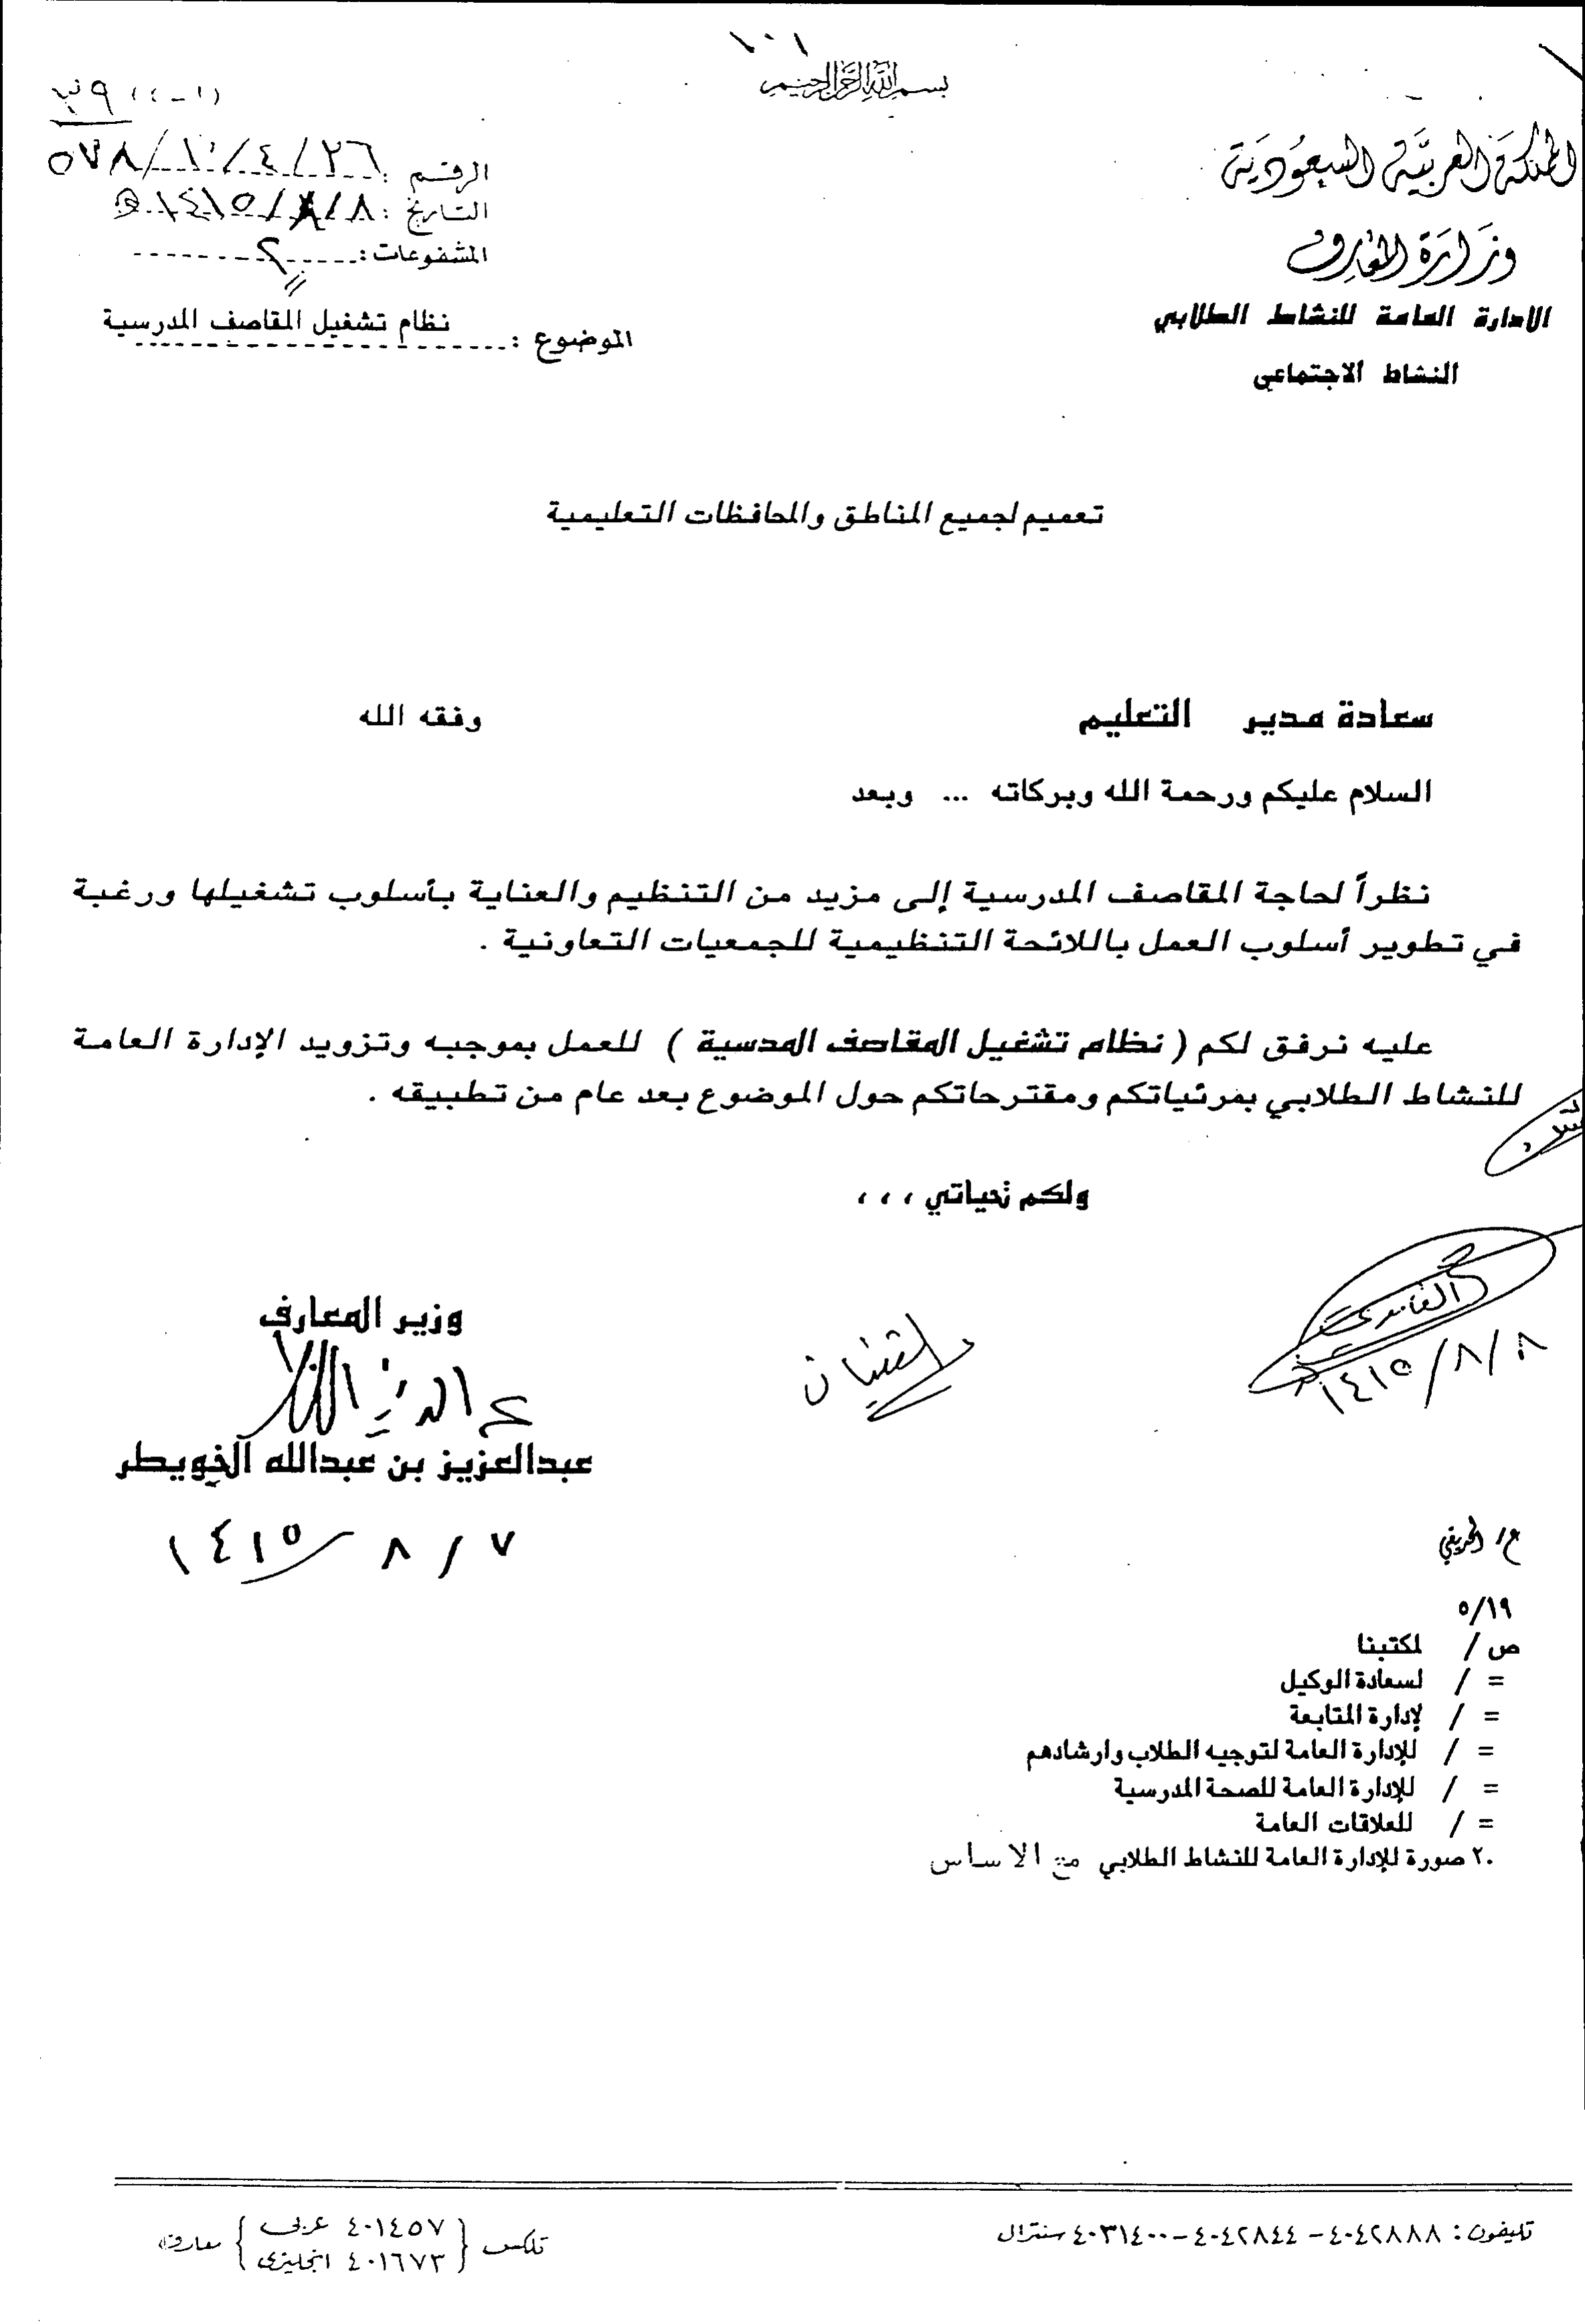 بسم الله الرحمن الرحيم
المملكة العربية السعودية
وزارة المعارف
الادارة العامة للنشاط الطلابي
النشاط الاجتماعي
(١-٤) ٣٩
الرقم : ٥٧٨/١٠/٤/٢٦
التاريخ : ١٤١٥/٨/٨ هـ
المشفوعات : ٢
الموضوع : نظام تشغيل المقاصف المدرسية
تعميم لجميع المناطق والمحافظات التعليمية
سعادة مدير التعليم وفقه الله
السلام عليكم ورحمة الله وبركاته ... وبعد
نظراً لحاجة المقاصف المدرسية إلى مزيد من التنظيم والعناية بأسلوب تشغيلها ورغبة
في تطوير أسلوب العمل باللائحة التنظيمية للجمعيات التعاونية .
عليه نرفق لكم ( نظام تشغيل المقاصف المدسية ) للعمل بموجبه وتزويد الإدارة العامة
للنشاط الطلابي بمرئياتكم ومقترحاتكم حول الموضوع بعد عام من تطبيقه .
ولكم تحياتي ، ، ،
وزير المعارف
عبدالعزيز بن عبدالله الخويطر
١٤١٥/٨/٧
١٤١٥/٨/٨
٥/١٩
ص / لمكتبنا
= / لسعادة الوكيل
= / لإدارة المتابعة
= / للإدارة العامة لتوجيه الطلاب وارشادهم
= / للإدارة العامة للصحة المدرسية
= / للعلاقات العامة
٢٠ صورة للإدارة العامة للنشاط الطلابي مع الاساس
تليفون : ٤٠٤٢٨٨٨ - ٤٠٤٢٨٤٤ - ٤٠٣١٤٠٠ سنترال
تلكس { ٤٠١٤٥٧ عربى
٤٠١٦٧٣ انجليزى } معارف